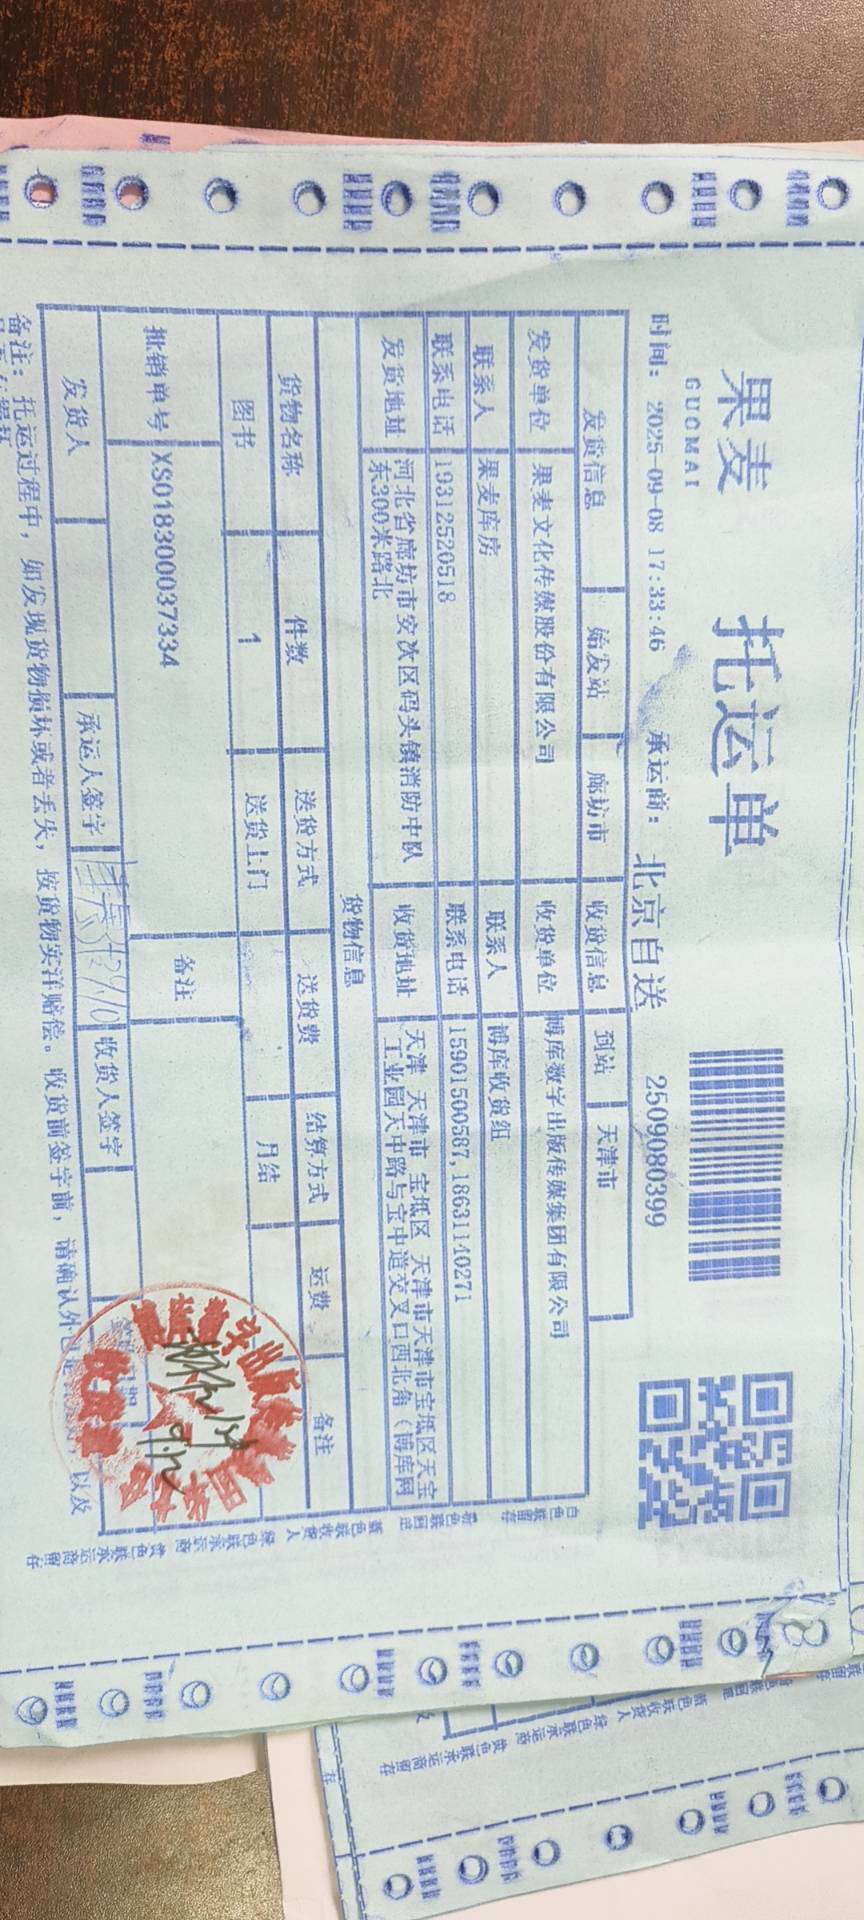 果麦
GUOMAI
托运单
时间： 2025-09-08 17:33:46 承运商： 北京自送 2509080399
发货信息 始发站 廊坊市 收货信息 到站 天津市
发货单位 果麦文化传媒股份有限公司 收货单位 博库数字出版传媒集团有限公司
联系人 果麦库房 联系人 博库收货组
联系电话 19312520518 联系电话 15901500587,18631140271
发货地址 河北省廊坊市安次区码头镇消防中队 收货地址 天津 天津市 宝坻区 天津市天津市宝坻区天宝
东300米路北 工业园天中路与宝中道交叉口西北角（博库网
货物信息
货物名称 件数 送货方式 送货费 结算方式 运费 备注
图书 1 送货上门 月结
批销单号 XS018300037334 备注
发货人 承运人签字 收货人签字
备注：托运过程中，如发现货物损坏或者丢失，按货物实洋赔偿。收货前签字前，请确认外包 以及
白色联留存
蓝色联收货人
绿色联承运商
黄色联承运商留存